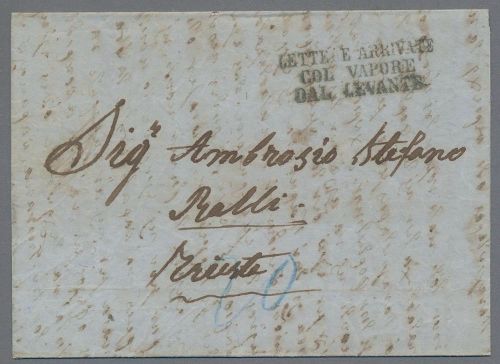 LETTERE ARRIVATE
COL VAPORE
DAL LEVANTE
Sigr Ambrosio Stefano
Ralli.
Trieste
10